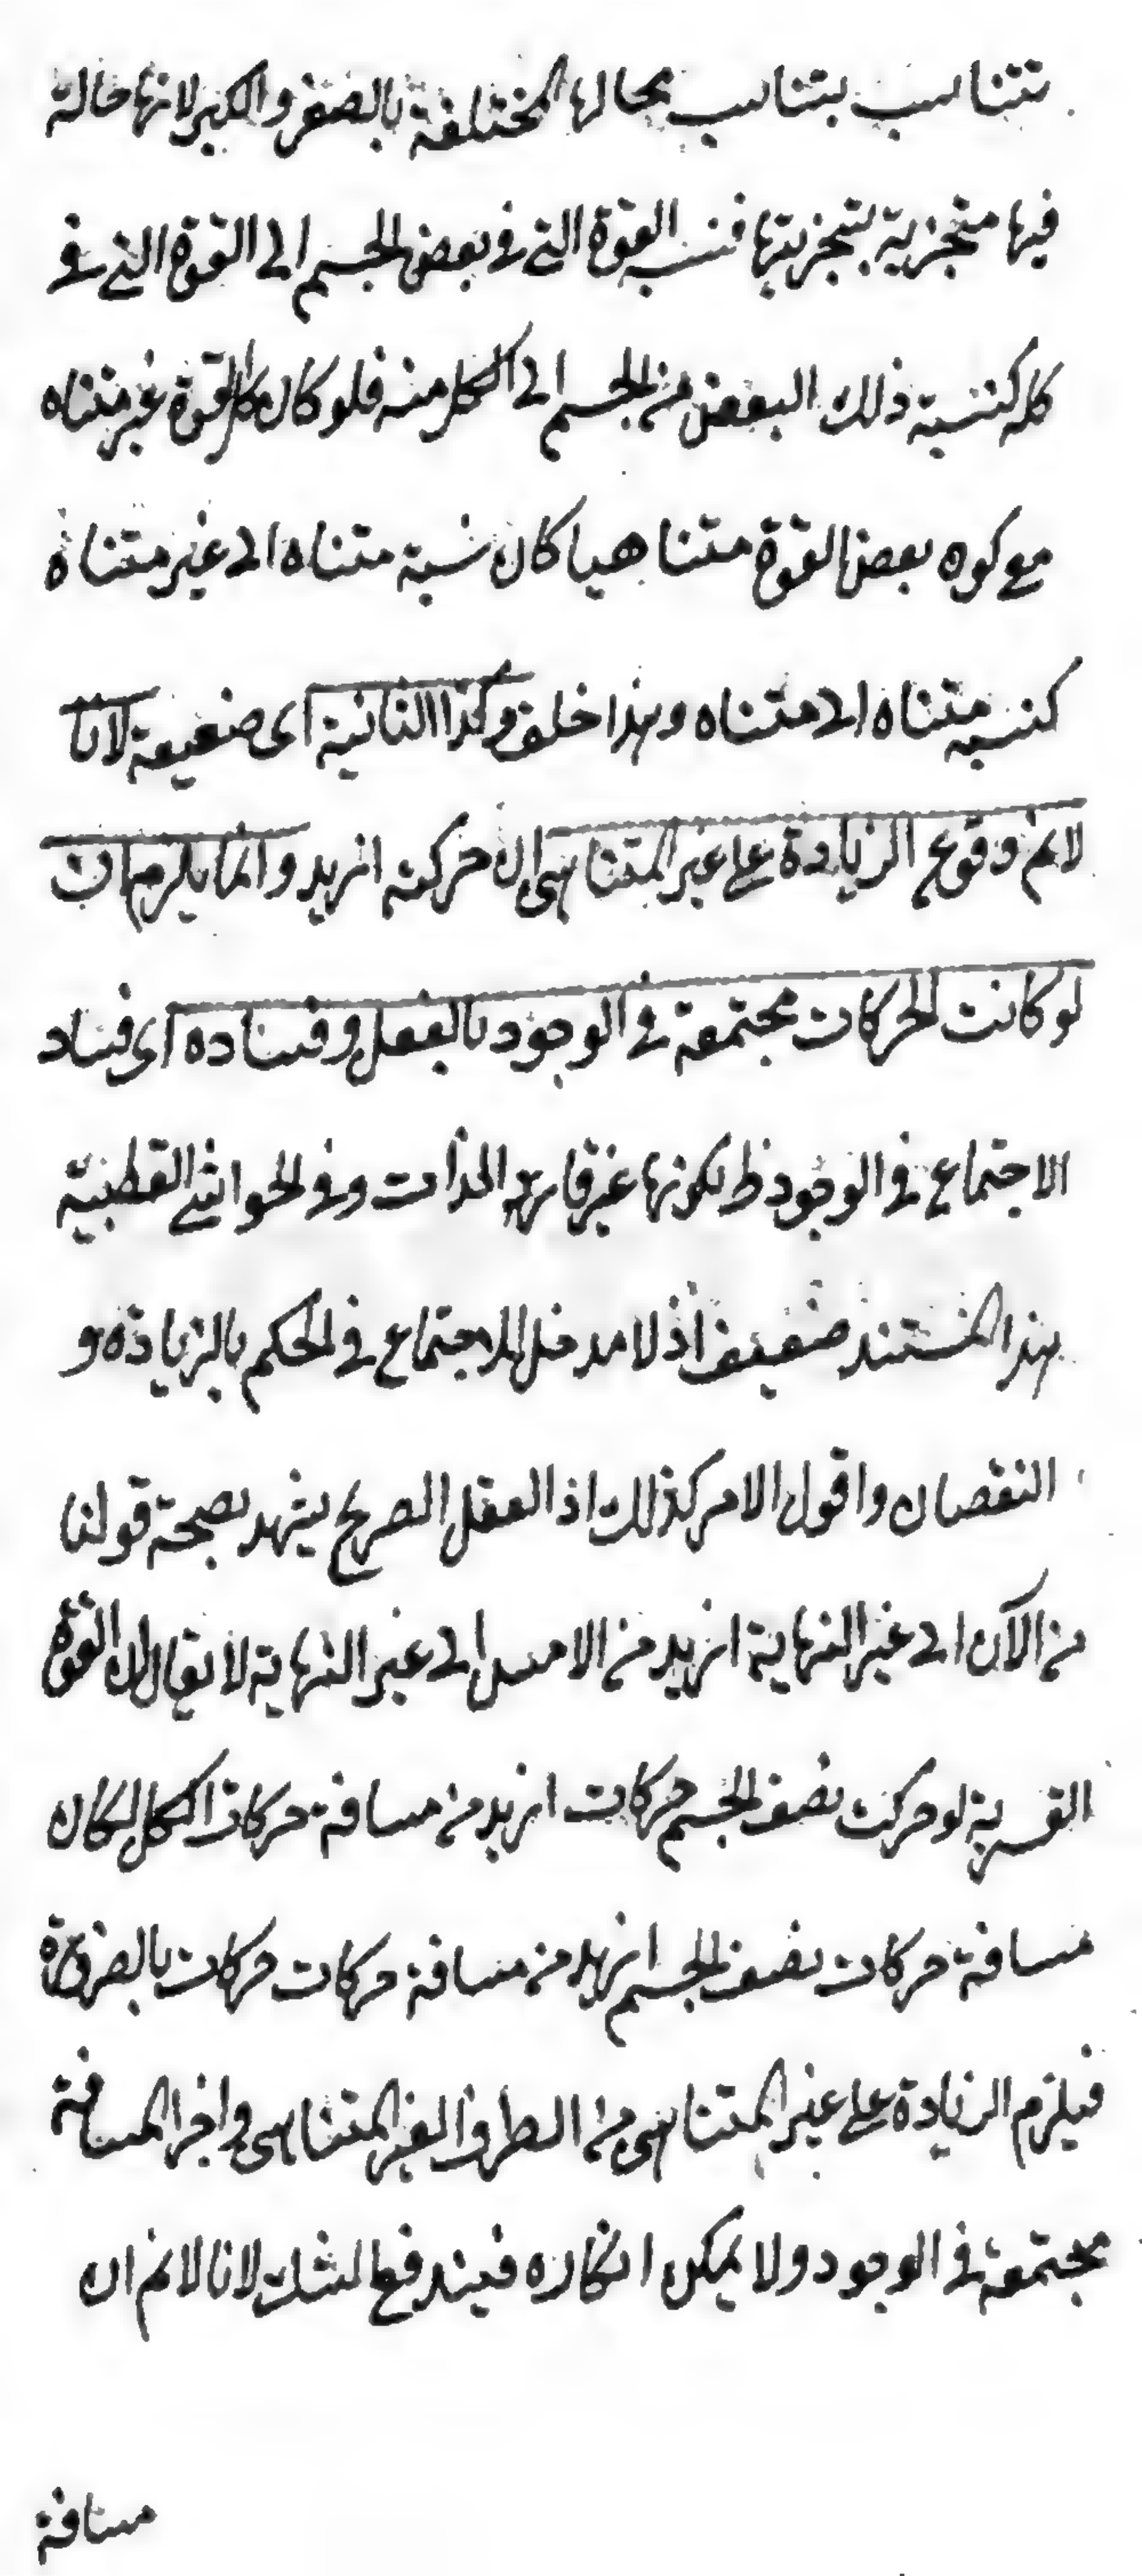 تتناسب بتناسب محالها المختلفة بالصغر والكبر لانها حالة
فيها متجزية بتجزيتها فنسبة القوة التى فى بعض الجسم الى القوة التى فى
كله كنسبة ذلك البعض من الجسم الى الكل منه فلو كان كل القوة غير متناه
مع كون بعض القوة متناهيا كان نسبة متناه الى غير متناه
كنسبة متناه الى متناه وهذا خلف وكذا الثانية اى ضعيفة لانا
لانم وقوع الزيادة على غير المتناهى ان حركته ازيد وانما يلزم ان
لو كانت الحركات مجتمعة فى الوجود بالفعل وفساده اى فساد
الاجتماع فى الوجود ظ لكونها غير قارة الذات وفى الحواشى القطبية
هذا المستند ضعيف اذ لا مدخل للاجتماع فى الحكم بالزيادة و
النقصان واقول الامر كذلك اذ العقل الصريح يشهد بصحة قولنا
من الآن الى غير النهاية ازيد من الامس الى غير النهاية لا يقال ان القوة
القسرية لو حركت نصف الجسم حركات ازيد من مسافة حركات الكل لكان
مسافة حركات نصف الجسم ازيد من مسافة حركات حركات بالضرورة
فيلزم الزيادة على غير المتناهى من الطرف الغير المتناهى واجزا المسافة
مجتمعة فى الوجود ولا يمكن انكاره فيندفع الشك لانا لانم ان
مسافة